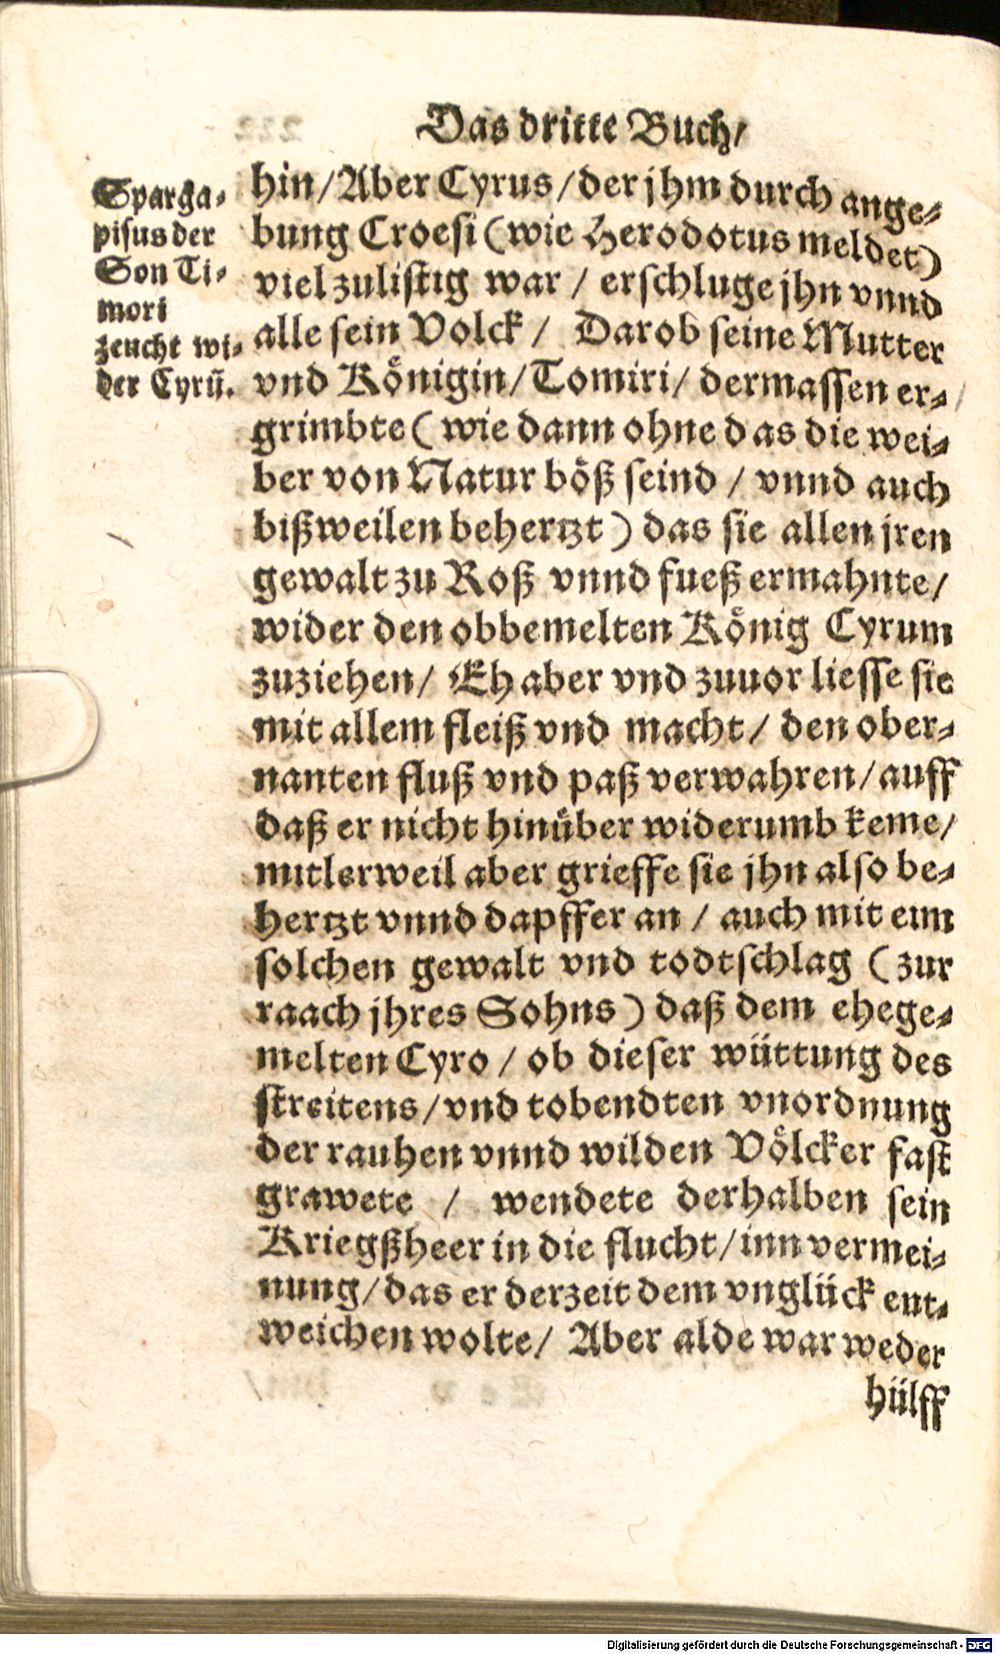 Das dritte Buch/
Sparga-
pisus der
Son Ti-
mori
zeucht wi-
der Cyrū.
hin/Aber Cyrus/der jhm durch ange-
bung Croesi (wie Herodotus meldet)
viel zulistig war / erschluge jhn vnnd
alle sein Volck / Darob seine Mutter
vnd Königin/Tomiri/ dermassen er-
grimbte ( wie dann ohne das die wei-
ber von Natur böß seind / vnnd auch
bißweilen behertzt ) das sie allen jren
gewalt zu Roß vnnd fueß ermahnte/
wider den obbemelten König Cyrum
zuziehen/ Eh aber vnd zuuor liesse sie
mit allem fleiß vnd macht/ den ober-
nanten fluß vnd paß verwahren/auff
daß er nicht hinüber widerumb keme/
mitlerweil aber grieffe sie jhn also be-
hertzt vnnd dapffer an / auch mit eim
solchen gewalt vnd todtschlag ( zur
raach jhres Sohns ) daß dem ehege-
melten Cyro / ob dieser wüttung des
streitens/vnd tobendten vnordnung
der rauhen vnnd wilden Völcker fast
grawete / wendete derhalben sein
Kriegßheer in die flucht/inn vermei-
nung/das er derzeit dem vnglück ent-
weichen wolte/ Aber alde war weder
hülff
Digitalisierung gefördert durch die Deutsche Forschungsgemeinschaft - DFG